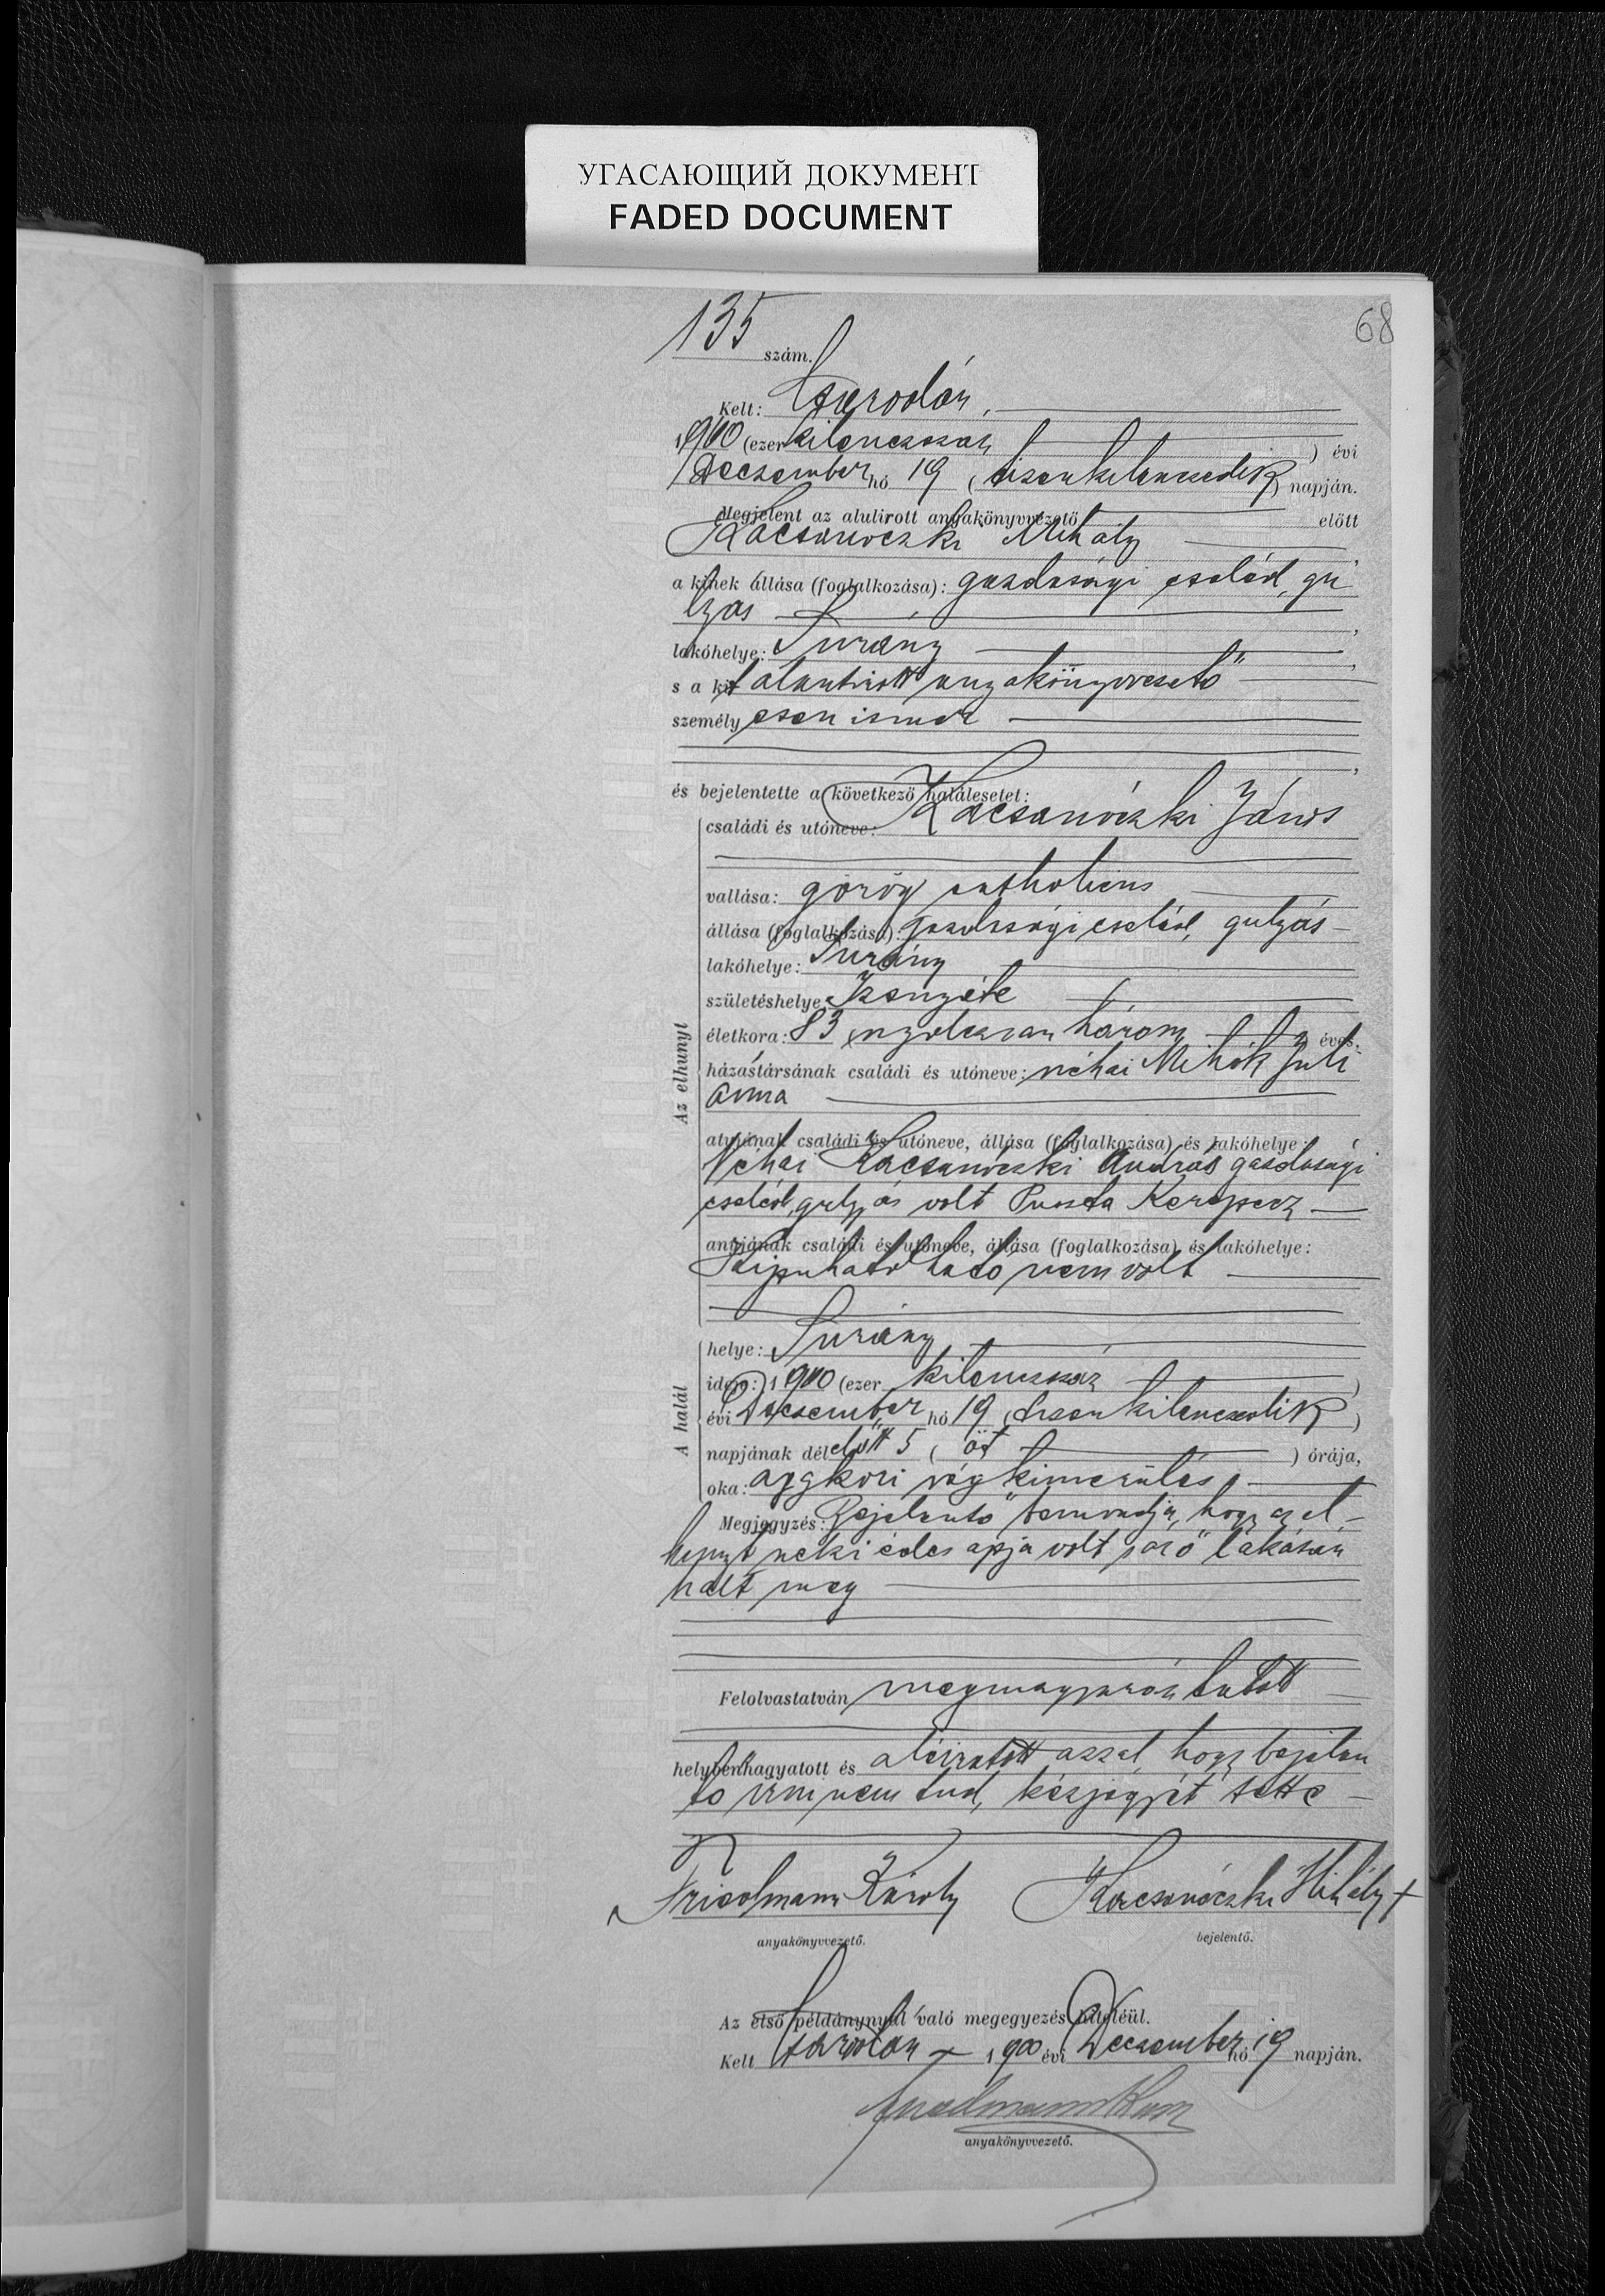 УГАСАЮЩИЙ ДОКУМЕНТ
FADED DOCUMENT
68
135 szám.
Kelt: Csarodán,
1900 (ezer kilenczszáz ) évi
Deczember hó 19 (tizenkilenczedik) napján.
Megjelent az alulirott anyakönyvvezető előtt
Kacsanóczki Mihály
a kinek állása (foglalkozása): gazdasági cseléd, gu
lyás
lakóhelye: Surány
s a kit alantirott anyakönyvvezető
személyesen ismer
és bejelentette a következő halálesetet:
Az elhunyt
családi és utóneve: Kacsanóczki János
vallása: görög catholicus
állása (foglalkozása): gazdasági cseléd, gulyás
lakóhelye: Surány
születéshelye: Izsnyéte
életkora: 83 nyolczvan három éves,
házastársának családi és utóneve: néhai Mihók Juli
anna
atyjának családi és utóneve, állása (foglalkozása) és lakóhelye:
Néhai Kacsanóczki András gazdasági
cseléd, gulyás volt Puszta Kerepecz
anyjának családi és utóneve, állása (foglalkozása) és lakóhelye:
Kipuhatolható nem volt
A halál
helye: Surány
ideje: 1900 (ezer kilenczszáz )
évi Deczember hó 19 (tizenkilenczedik)
napjának délelőtt 5 ( öt ) órája,
oka: aggkori végkimerülés
Megjegyzés: Bejelentő bemondja, hogy az el-
hunyt neki édes apja volt s az ő lakásán
halt meg
Felolvastatván megmagyaráztatott
helybenhagyatott és aláiratott azzal, hogy bejelen
tő irni nem tud, kézjegyét tette
Friedmann Károly Kacsanóczki Mihály +
anyakönyvvezető. bejelentő.
Az első példánynyal való megegyezés hiteléül.
Kelt Csarodán 1900 évi Deczember hó 19 napján.
Friedmann Károly
anyakönyvvezető.